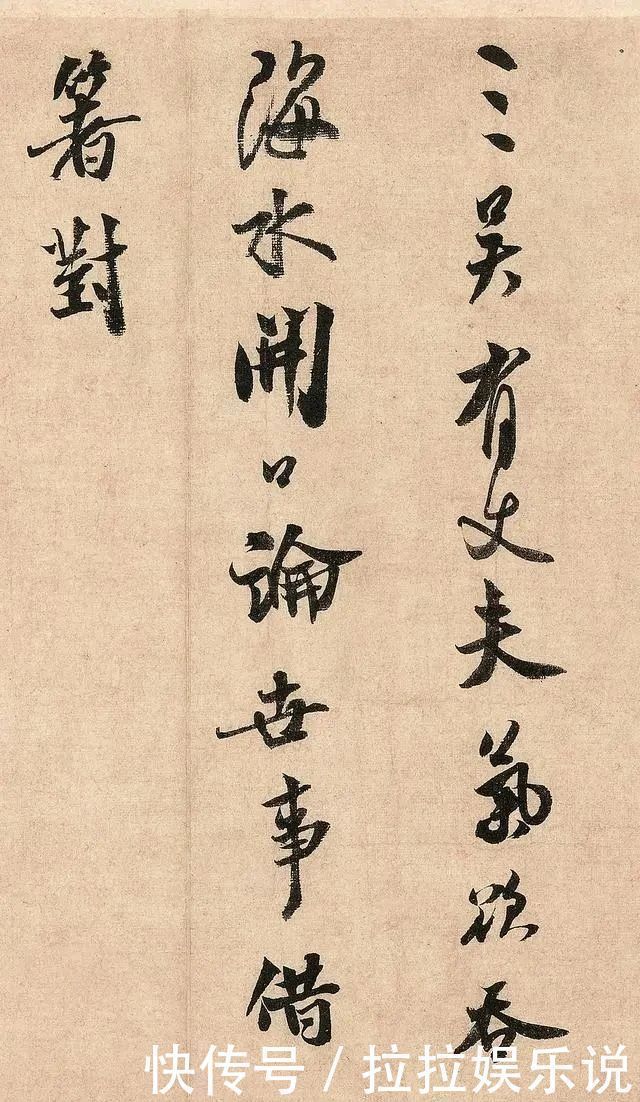 三吴有丈夫氣欲吞
海水開口論世事借
箸對
快传号/拉拉娱乐说